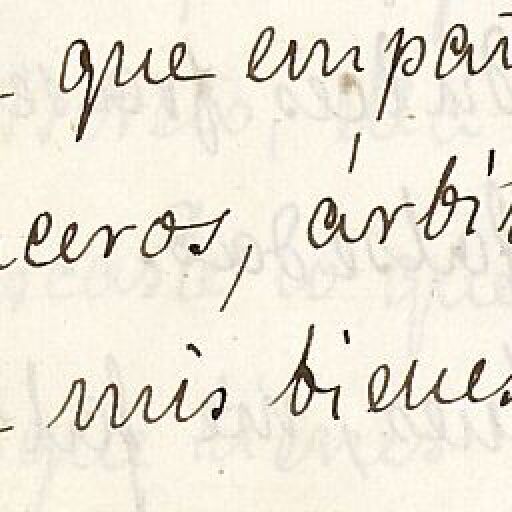 que empañ
ceros, árbit
mis bienes